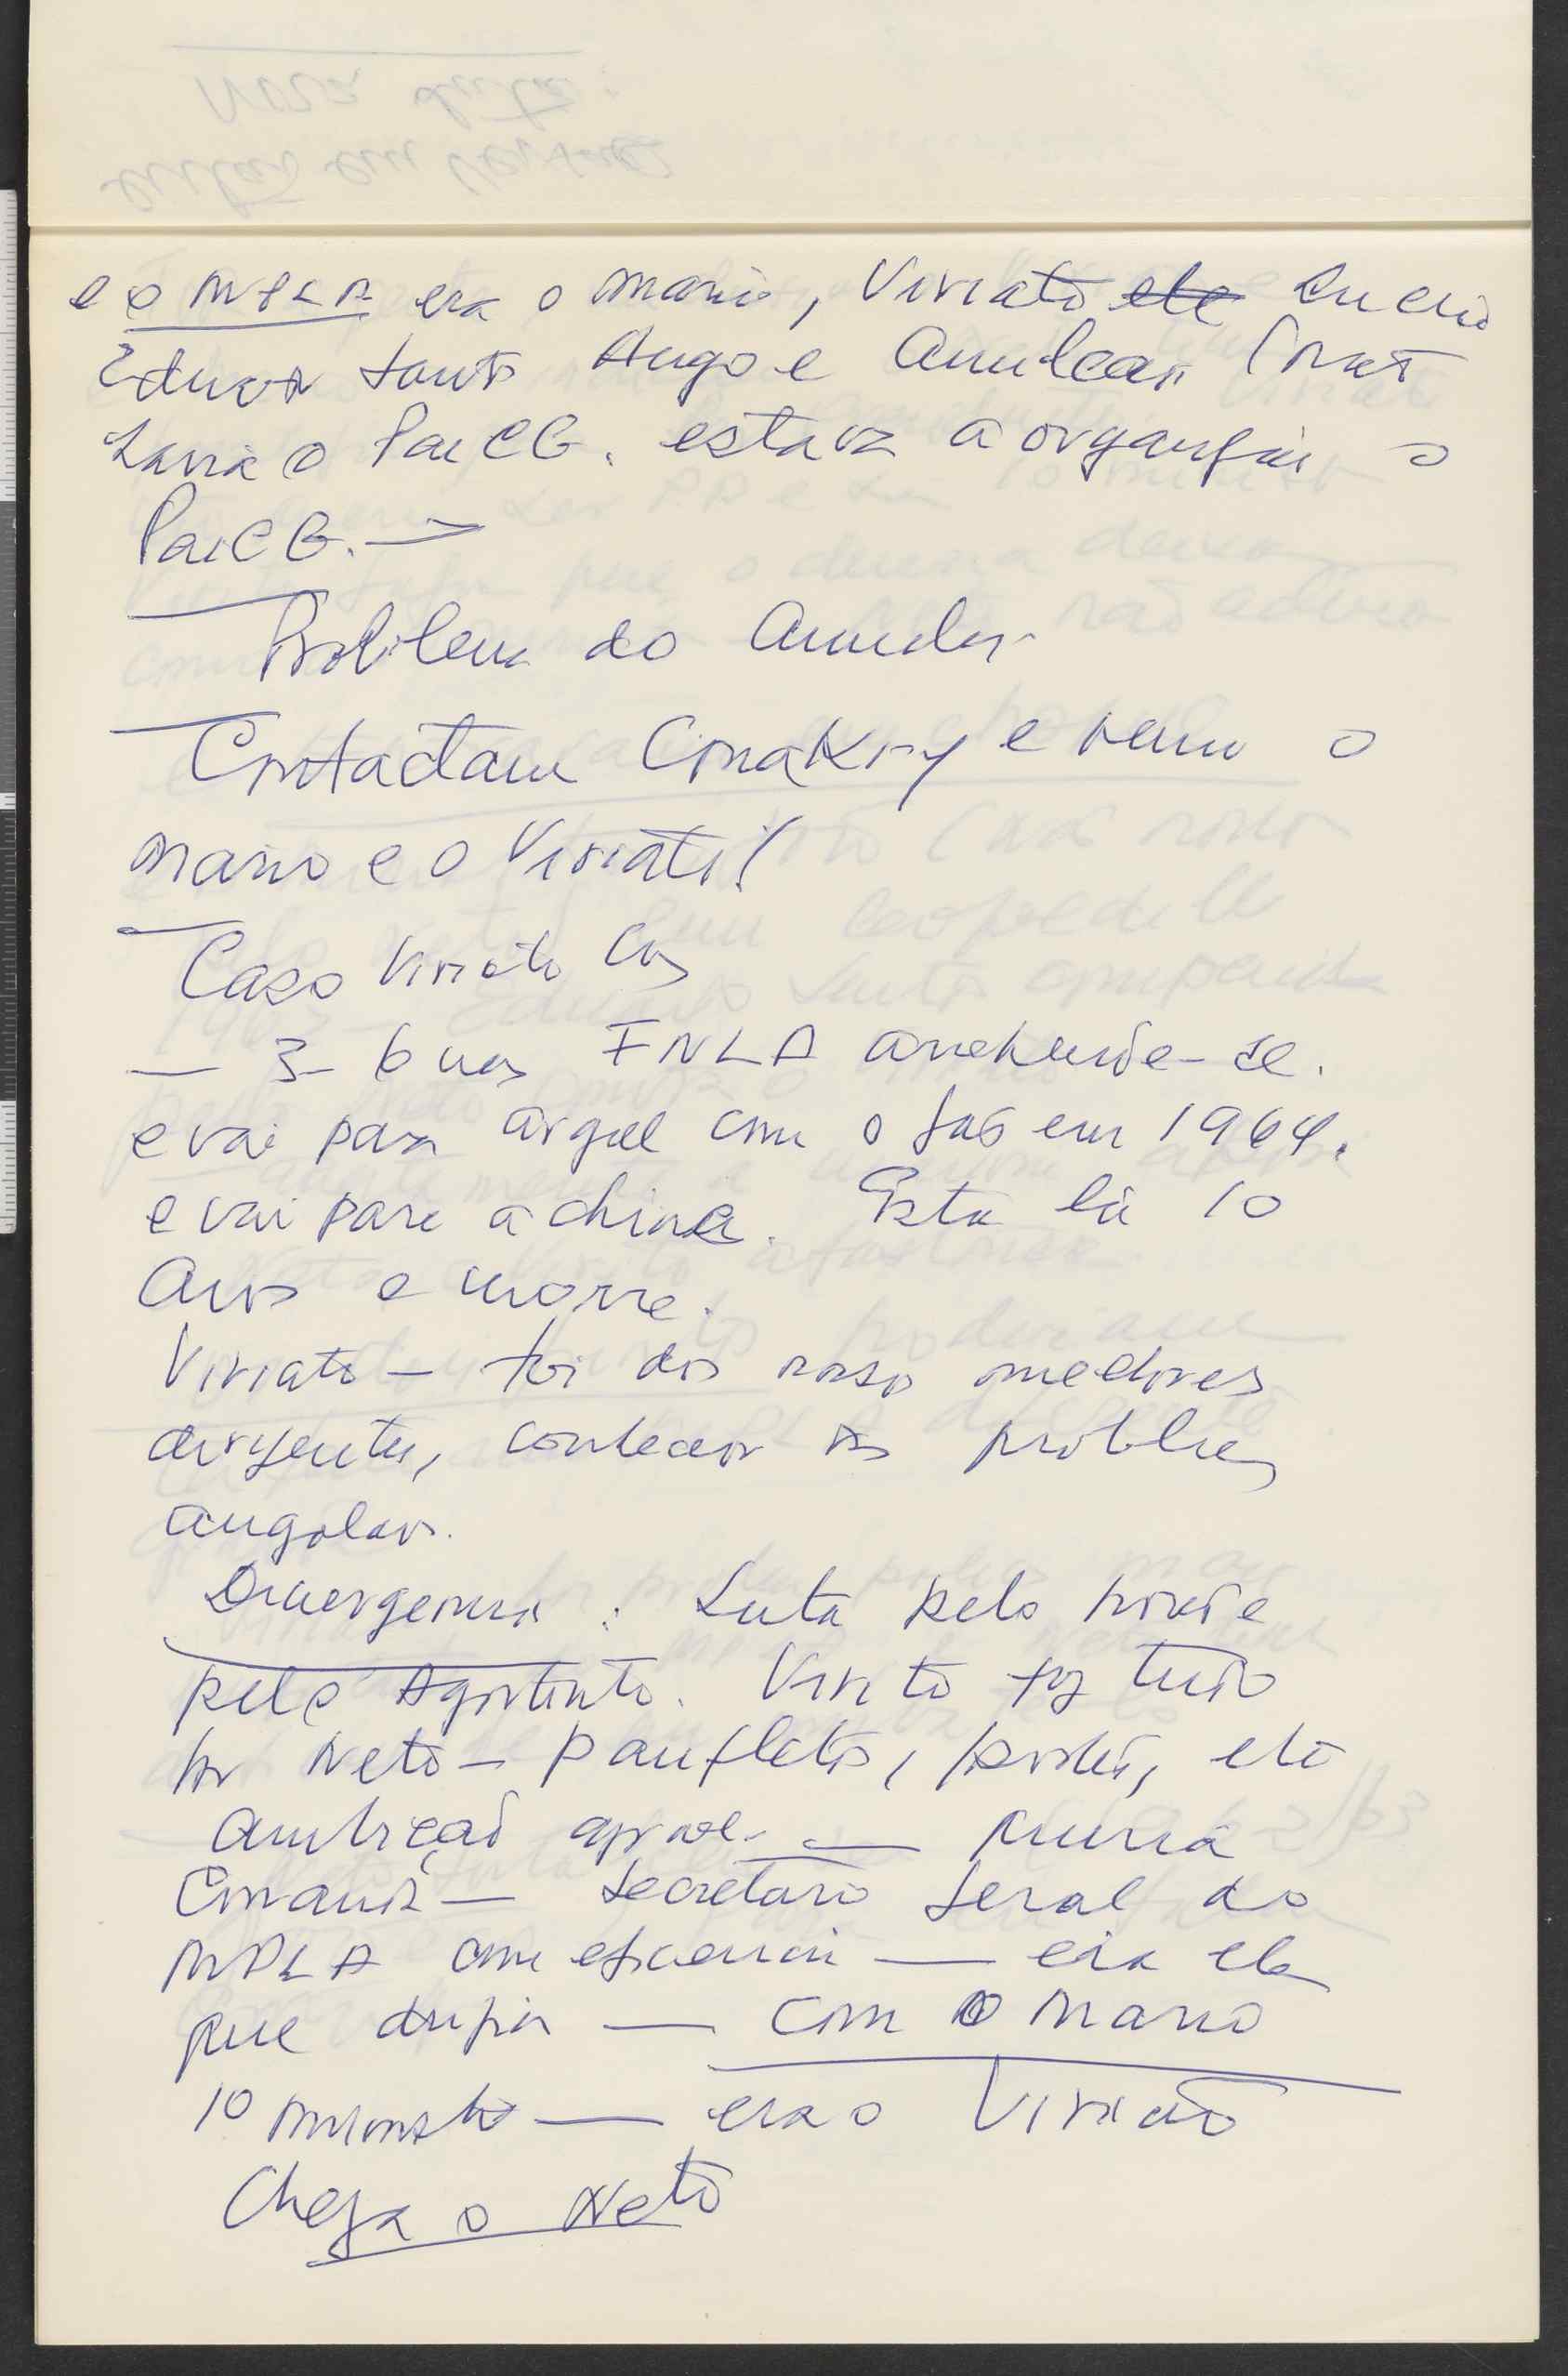 e o MPLA era o Mario, Viriato ete Lucio
Eduardo Santos Hugo e Amilcar
havia o PaiCG. estava a organizar o
PaiCG. →
Problema do
Contactam Conakry e vem o
Mario e o Viriato!
Caso Viriato Cruz
— 3 - 6 FNLA arrepende-se.
e vai para Argel com o em 1964.
e vai para a China. Esta lá 10
anos e morre.
Viriato — foi dos nossos melhores
dirigentes, conhecedor dos problemas
angolanos.
Divergencia : Luta pelo poder e
pelo Agostinho. Viriato fez tudo
por Neto — panfletos, postais, etc
ambição —
Conakry — Secretario Geral do
MPLA com eficiencia — era ele
que dirigia — com o Mario
10 — era o Viriato
Chega o Neto